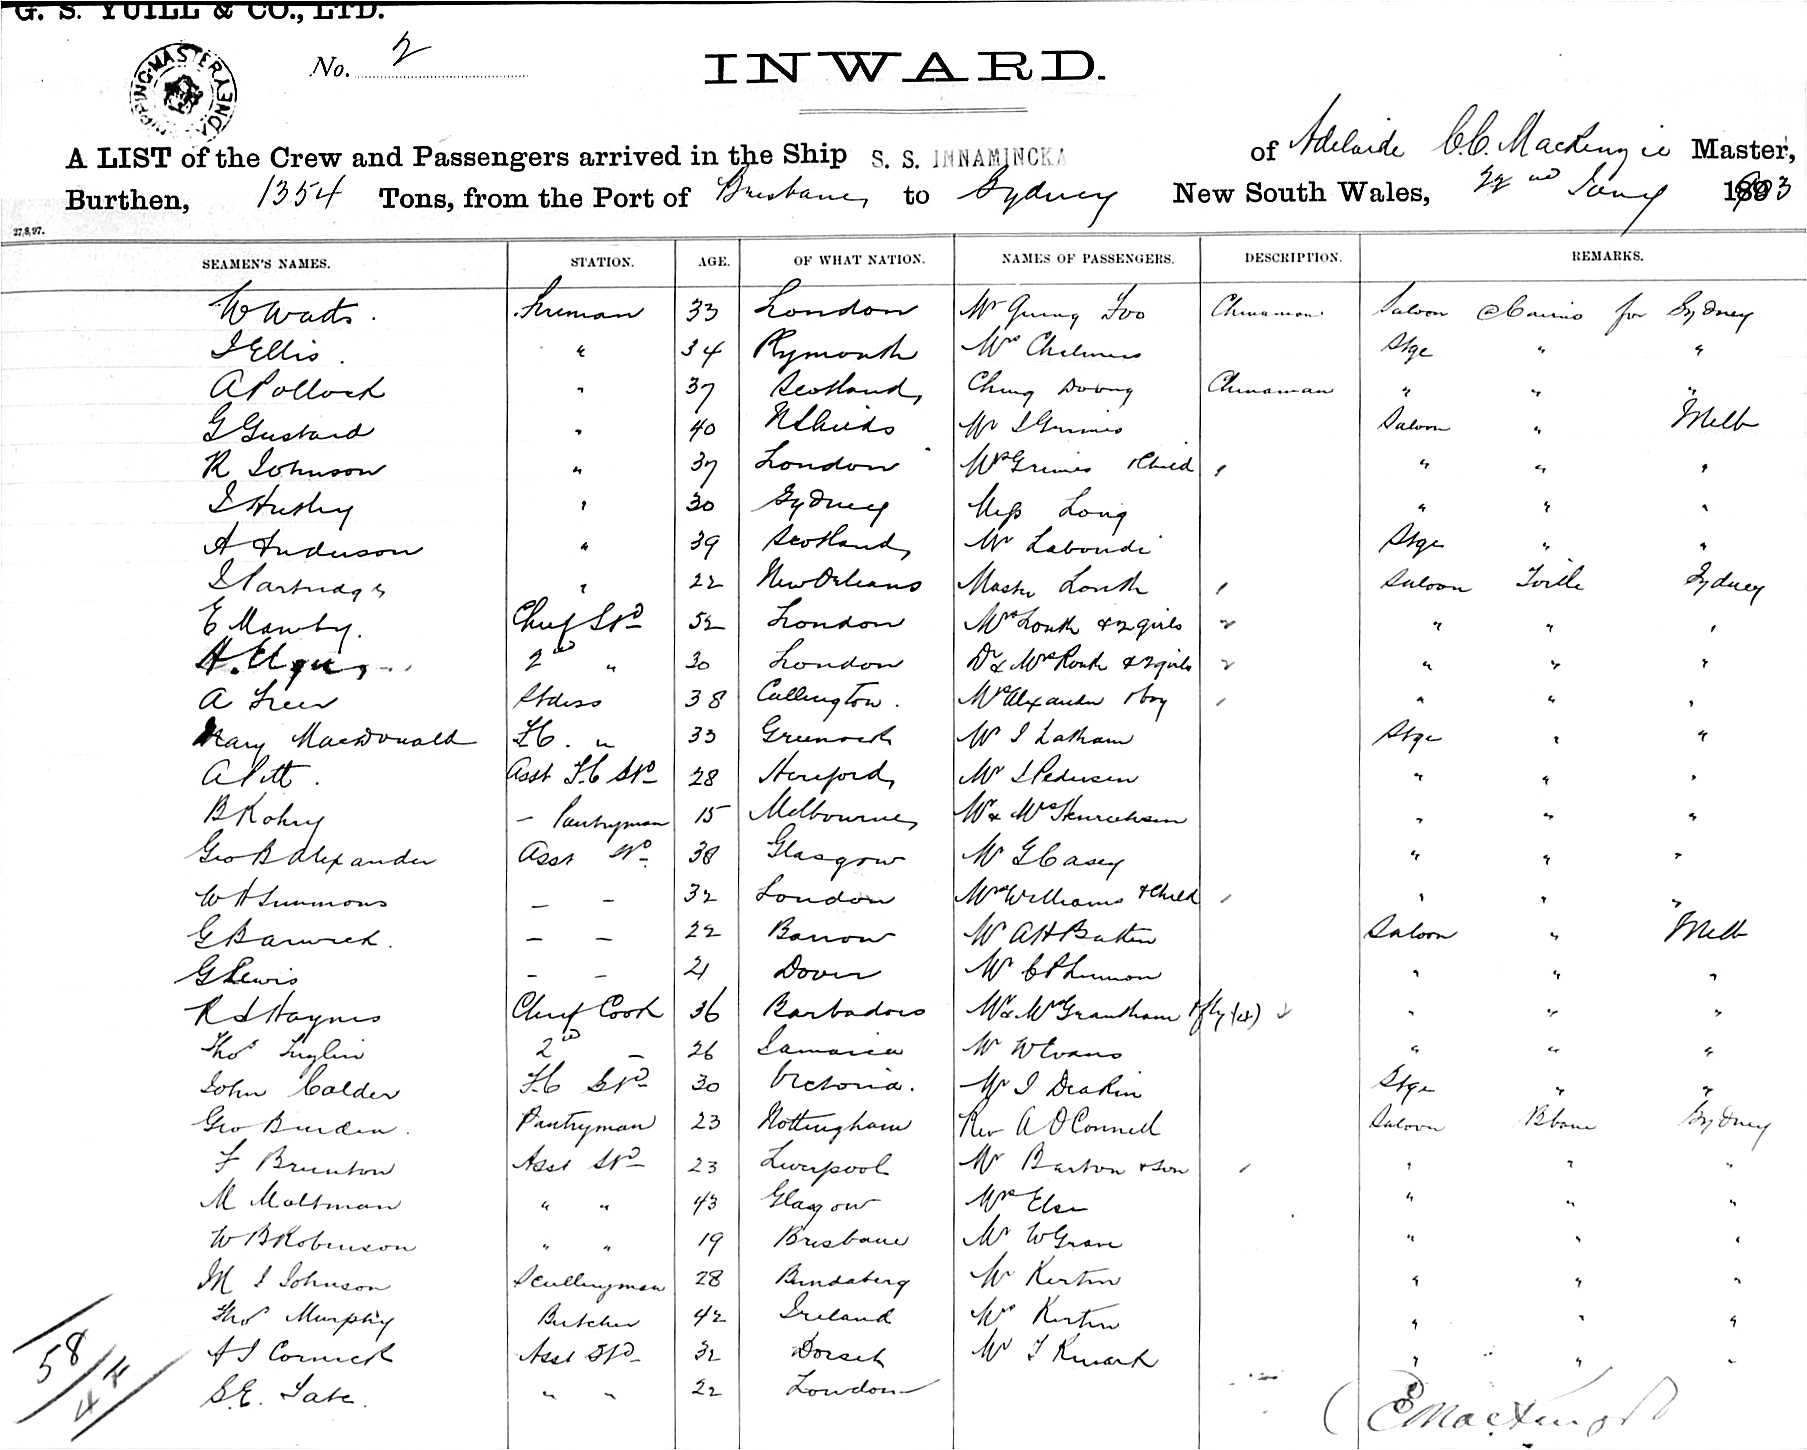 G. S. YUILL & CO., LTD.
No. 2
INWARD.
SHIPPING MASTER SYDNEY
A LIST of the Crew and Passengers arrived in the Ship S. S. INNAMINCKA of Adelaide C.C. MacKenzie Master,
Burthen, 1354 Tons, from the Port of Brisbane, to Sydney New South Wales, 22nd Jany 1903
27,8,97.
SEAMEN'S NAMES. STATION. AGE. OF WHAT NATION. NAMES OF PASSENGERS. DESCRIPTION. REMARKS.
W Watts. Fireman 33 London Mr Quing Foo Chinaman Saloon Cairns for Sydney
J Ellis. " 34 Plymouth Mrs Chalmers Stge " "
A Pollock " 37 Scotland, Ching Doong Chinaman " " "
G Gustard " 40 N Shields Mr J Grimes Saloon " Melb
R Johnson " 37 London Mrs Grimes & Child 1 " " "
J Husley " 30 Sydney Miss Long " " "
A Anderson " 39 Scotland, Mr Laboudi Stge " "
J Partridge " 22 New Orleans Master Louth 1 Saloon Tville Sydney
E Mawby. Chief Std 52 London Mrs Louth & 2 girls 2 " " "
A. 2nd " 30 London Dr & Mrs Routh & 2 girls 2 " " "
A Greer Stdess 38 Callington. Mrs Alexander & boy 1 " " "
Mary MacDonald F.C. " 33 Greenock Mr J Latham Stge " "
A Pitt. Asst F.C Std 28 Hereford, Mr J Pedersen " " "
B Kohry – Pantryman 15 Melbourne, Mr & Mrs Henrichsen " " "
Geo B Alexander Asst Std 38 Glasgow Mr G Casey " " "
W H Simmons – – 32 London Mrs Williams & Child 1 " " "
G Barwick. – – 22 Barrow Mr A H Batten Saloon " Melb
G Lewis – – 21 Dover Mr C P Lennon " " "
R J Haynes Chief Cook 36 Barbadoes Mr & Mrs Grantham & fly (2) 2 " " "
Thos Luglin 2nd – 26 Jamaica Mr W Evans " " "
John Calder F.C Std 30 Victoria. Mr J Deakin Stge " "
Geo Burden. Pantryman 23 Nottingham Rev A O'Connell Saloon Bbane Sydney
F Brunton Asst Std 23 Liverpool Mr Barton & son 1 " " "
M Maltman " " 43 Glasgow Mrs Else " " "
W B Robinson " " 19 Brisbane Mr W Grave " " "
M J Johnson Sculleryman 28 Bundaberg Mr Kirton " " "
Thos Murphy Butcher 42 Ireland Mrs Kirton " " "
A J Cornick Asst Std 32 Dorset Mr T Kwark " " "
S.E. Tate. " " 22 London
58/44
C C MacKenzie